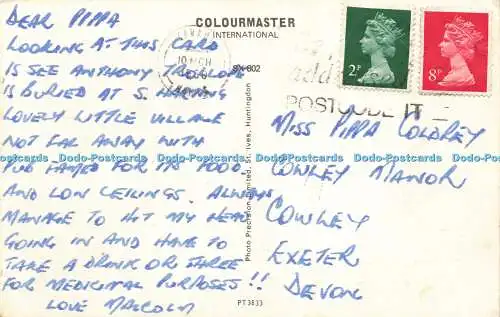 DEAR PIPPA
LOOKING AT THIS CARD
IS SEE ANTHONY TROLLOPE
IS BURIED AT S. HARTING
LOVELY LITTLE VILLAGE
NOT FAR AWAY WITH
PUB FAMED FOR ITS FOOD
AND LOW CEILINGS. ALWAYS
MANAGE TO HIT MY HEAD
GOING IN AND HAVE TO
TAKE A DRINK OR THREE
FOR MEDICINAL PURPOSES!!
LOVE MALCOLM
COLOURMASTER
INTERNATIONAL
SX 602
Photo Precision Limited, St. Ives, Huntingdon
PT3833
2P
8P
POSTCODE IT
MISS PIPPA COLDREY
COWLEY MANOR
COWLEY
EXETER
DEVON
Dodo-Postcards Dodo-Postcards Dodo-Postcards Dodo-Postcards Dodo-Postcards